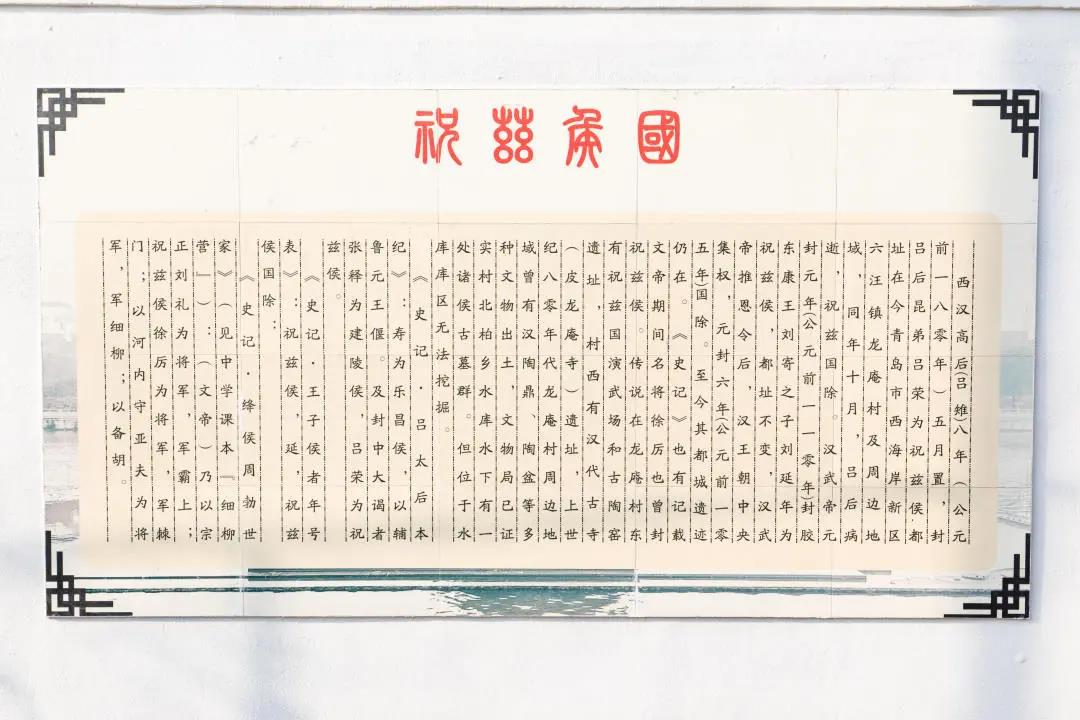 祝兹侯國
西汉高后(吕雉)八年（公元
前一八零年）五月置，封
吕后昆弟吕荣为祝兹侯，都
址在今青岛市西海岸新区
六汪镇龙庵村及周边地
域，同年十月，吕后病
逝，祝兹国除。汉武帝元
封元年(公元前一一零年)封胶
东康王刘寄之子刘延年为
祝兹侯，都址不变，汉武
帝推恩令后，汉王朝中央
集权，元封六年(公元前一零
五年)国除。至今其都城遗迹
仍在。《史记》也有记载
文帝期间名将徐厉也曾封
祝兹侯。传说在龙庵村东
有祝兹国演武场和古陶窑
遗址，村西有汉代古寺
（皮龙庵寺）遗址，上世
纪八零年代龙庵村周边地
域曾有汉陶鼎、陶盆等多
种文物出土，文物局已证
实村北柏乡水库水下有一
处诸侯古墓群。但位于水
库库区无法挖掘。
《史记·吕太后本
纪》：寿为乐昌侯，以辅
鲁元王偃。及封中大谒者
张释为建陵侯，吕荣为祝
兹侯。
《史记·王子侯者年号
表》：祝兹侯，延，祝兹
侯国除：
《史记·绛侯周勃世
家》（见中学课本『细柳
营』）：（文帝）乃以宗
正刘礼为将军，军霸上；
祝兹侯徐厉为将军，军棘
门；以河内守亚夫为将
军，军细柳；以备胡。